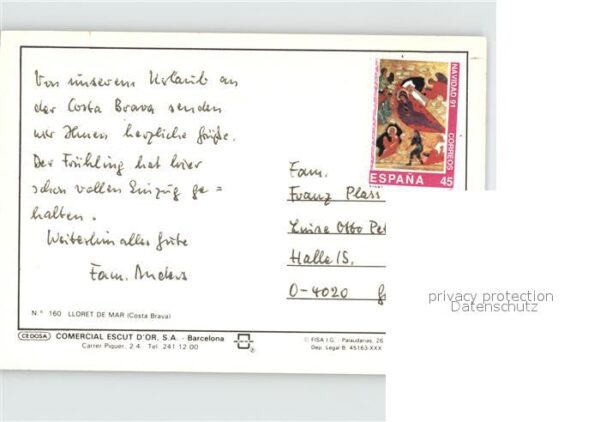 Von unserem Urlaub an
der Costa Brava senden
wir Ihnen herzliche Grüße.
Der Frühling hat hier
schon vollen Einzug ge=
halten.
Weiterhin alles Gute
Fam. Anders
NAVIDAD 91 CORREOS
ESPAÑA 45
Fam.
Franz Plass
Luise Otto Pet
Halle/S.
O-4020
privacy protection
Datenschutz
N.° 160 LLORET DE MAR (Costa Brava)
CEDOSA COMERCIAL ESCUT D'OR, S.A. - Barcelona
Carrer Piquer, 2 4 Tel. 241 12 00
© FISA I.G. - Palaudarias, 26
Dep. Legal B. 45163-XXX